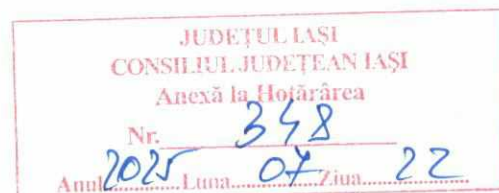 JUDEȚUL IAȘI
CONSILIUL JUDEȚEAN IAȘI
Anexă la Hotărârea
Nr. 348
Anul 2025 Luna 07 Ziua 22